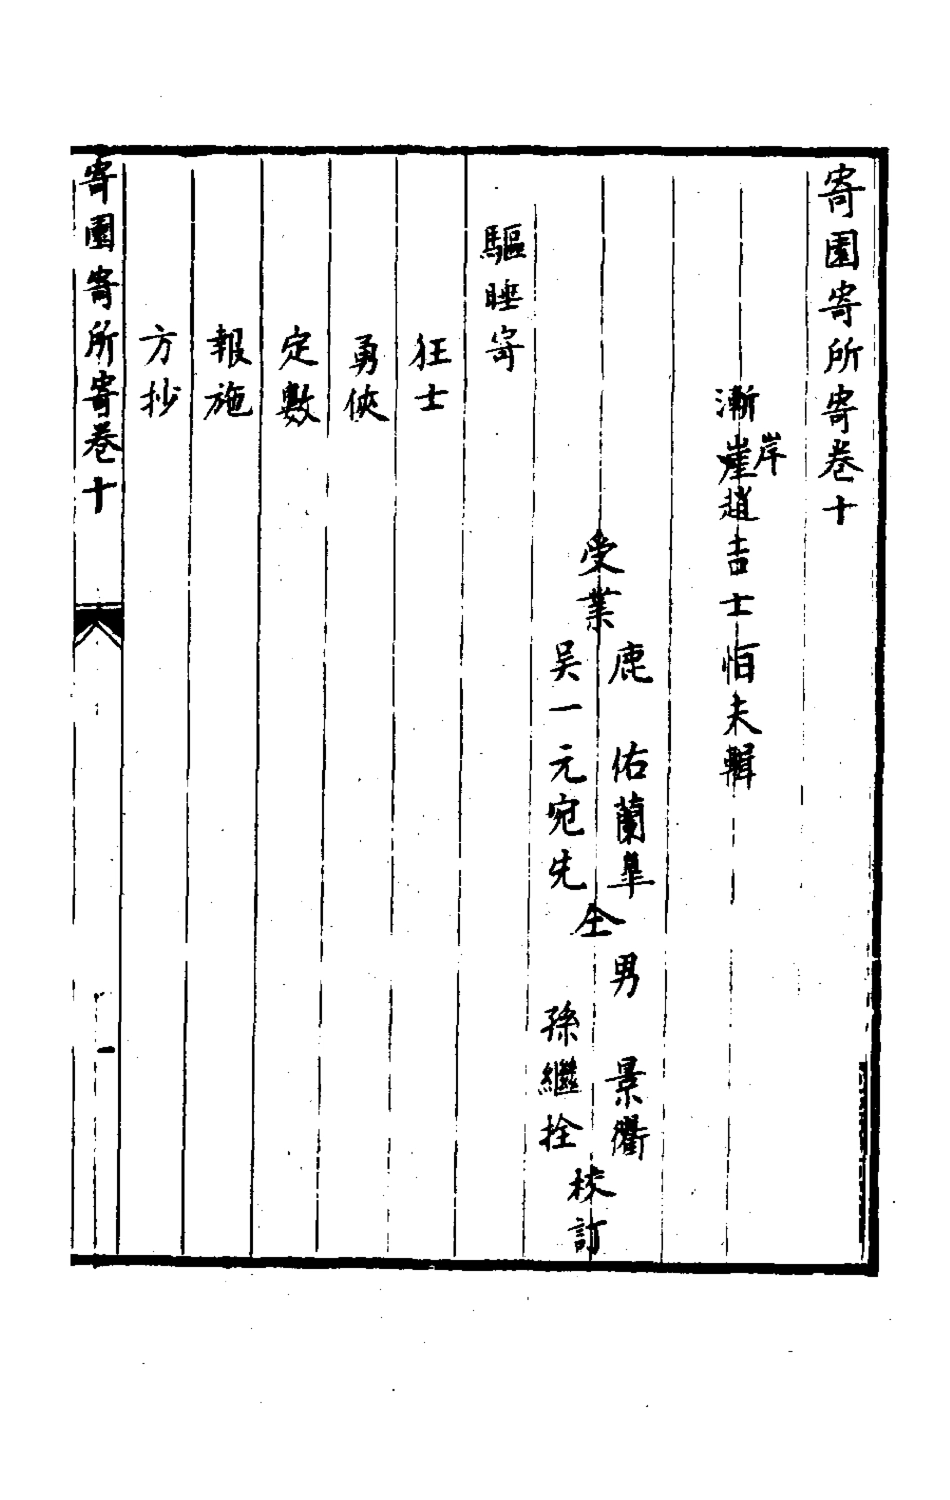 寄園寄所寄卷十
漸崖岸趙吉士恒夫輯
受業
鹿　佑蘭皋
吳一元宛先
仝
男　景𢖍
孫繼拴
校訂
驅睡寄
狂士
勇俠
定數
報施
方抄
寄園寄所寄卷十
一